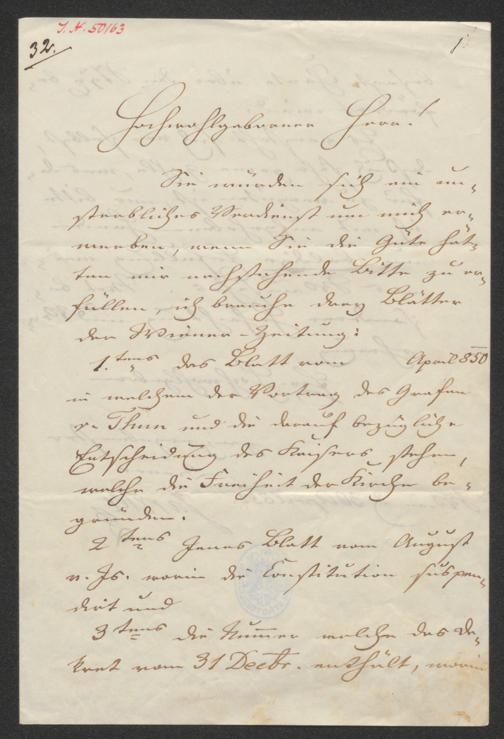 I. N. 50163
32.
Hochwohlgeborener Herr!
Sie würden sich ein un-
sterbliches Verdienst um mich er-
werben, wenn Sie die Güte hät-
ten mir nachstehende Bitte zu er-
füllen, ich brauche drey Blätter
der Wiener-Zeitung:
1.tens das Blatt vom April 850
in welchem der Vortrag des Grafen
v. Thun und die darauf bezügliche
Entscheidung des Kaisers stehen,
welche die Freiheit der Kirche be-
gründen.
2tens Jenes Blatt vom August
v. Js. worin die Constitution suspen-
dirt und
3tens die Nummer welche das De-
kret vom 31 Decbr. enthält, worin